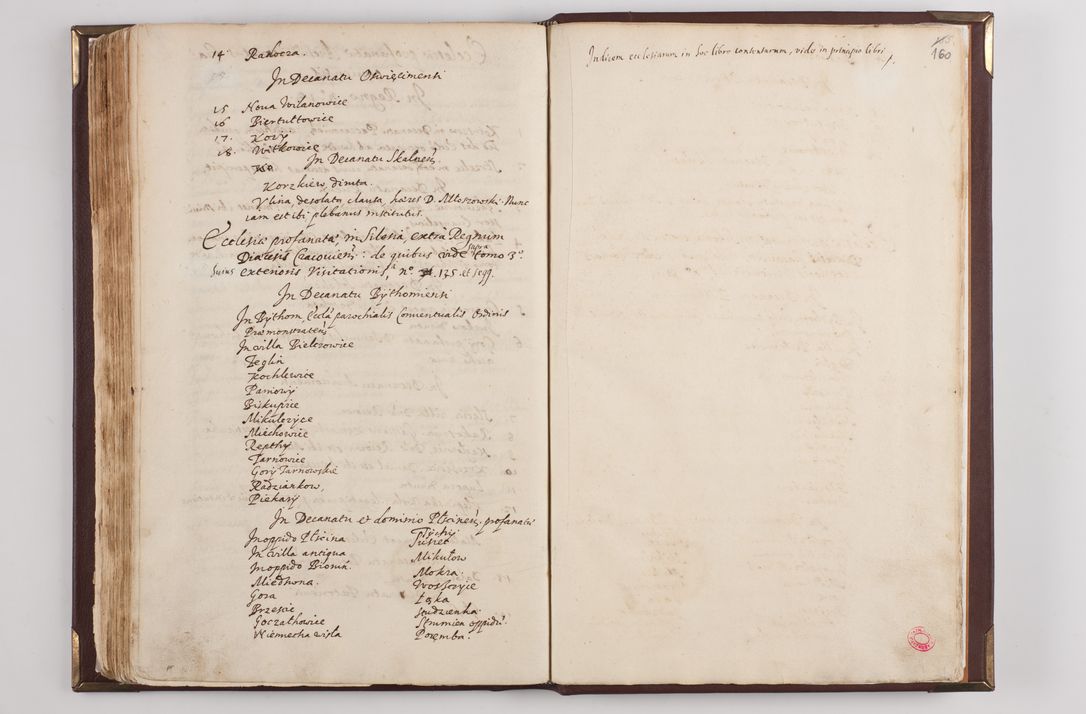 14 Rakocza.
In Decanatu Oswięcimensi
15 Nova Wilanowice
16 Biertultowice
17. Kozy
18. Witkowice
In Decanatu Skalnen.
Korzkiew, diruta.
Vlina, desolata, clausa, hæres D. Młoszowski. Nunc
iam est ibi plebanus institutus.
Ecclesiæ profanatæ, in Silesia, extra Regnum
Diæcesis Cracovien: de quibus vide supra tomo 3º
huius exterioris Visitationis, nº 135 et seqq.
In Decanatu Bythomiensi
In Bythom, Eccla parochialis Conventualis Ordinis
Præmonstraten
In villa Bielczowice
Zeglin
Kochlewice
Paniowy
Biskupice
Mikulczyce
Miechowice
Repthy
Tarnowice
Gory Tarnowskie
Radziankow,
Piekary
In Decanatu et dominio Plscinen, profanatæ
In oppido Plscina
In villa antiqua
In oppido Bierun
Miedhona.
Gora
Brzescie
Goczalkowice
Niemiecka wisla
Tychy
Mikułow
Mokra.
Woszczyce
Łąka
Studzienka.
Strumien oppidu
Poremba.
Indicem ecclesiarum in hoc libro contentarum, vide in principio libri
160